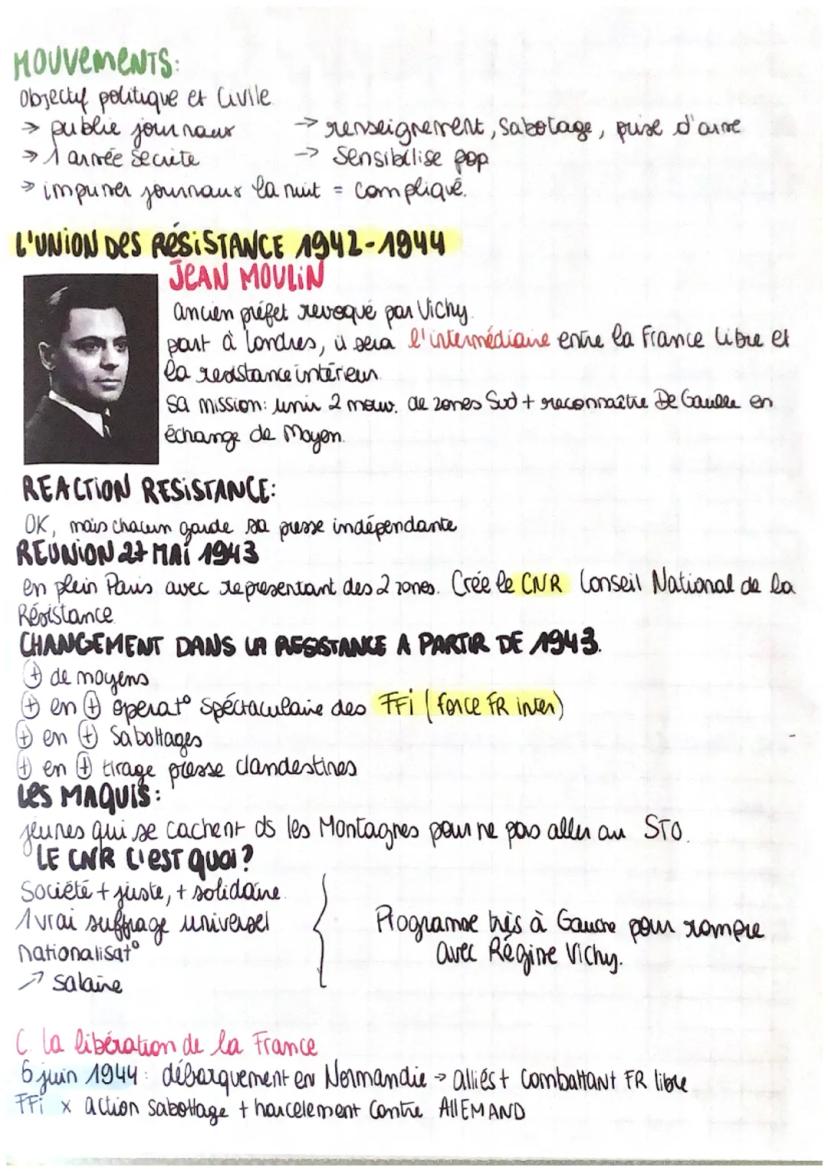 MOUVEMENTS:
Objectif politique et Civile
→ publie journaux → renseignement, Sabotage, prise d'arme
→ 1 armée secrète → Sensibilise pop
→ imprimer journaux la nuit = compliqué.
L'UNION DES RÉSISTANCE 1942-1944
JEAN MOULIN
ancien préfet revoqué par Vichy.
part à Londres, il sera l'intermédiaire entre la France libre et
la resistance intérieur.
Sa mission: unir 2 mouv. de zones Sud + reconnaître De Gaulle en
échange de Moyen.
REACTION RESISTANCE:
OK, mais chacun garde sa presse indépendante
REUNION 27 MAI 1943
en plein Paris avec representant des 2 zones. Crée le CNR Conseil National de la
Résistance
CHANGEMENT DANS LA RESISTANCE A PARTIR DE 1943.
⊕ de moyens
⊕ en ⊕ operat° Spéctaculaire des FFi (force FR inter)
⊕ en ⊕ Sabottages
⊕ en ⊕ tirage presse clandestines
LES MAQUIS:
jeunes qui se cachent ds les Montagnes pour ne pas aller au STO.
LE CNR C'EST QUOI?
Société + juste, + solidaire
1 vrai suffrage universel
nationalisat°
↗ salaire
Programme très à Gauche pour rompre
avec Régime Vichy.
C. la libération de la France
6 juin 1944: débarquement en Normandie → alliés + combattant FR libre
FFi x action sabottage + harcelement Contre AllEMAND